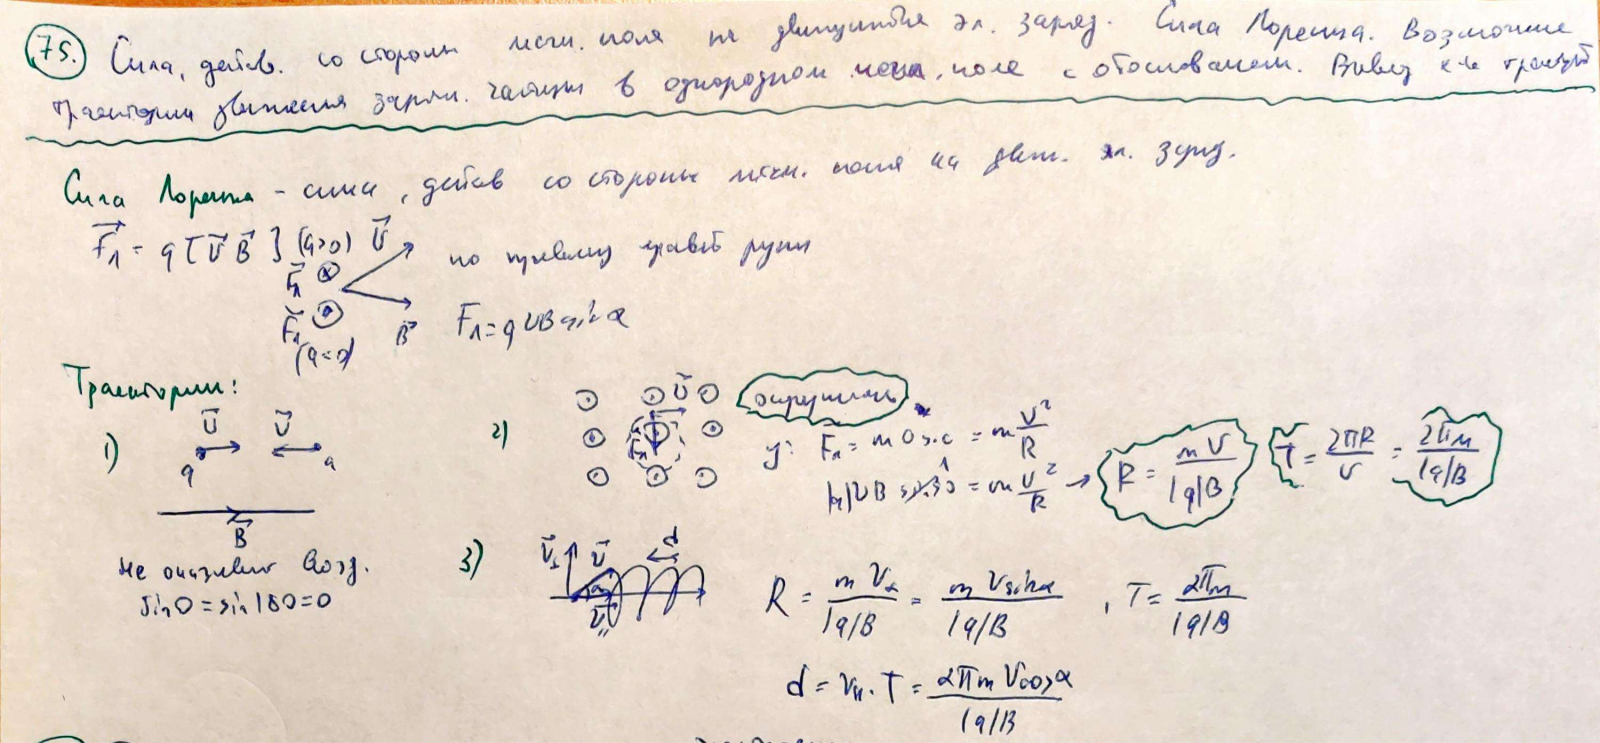 75. Сила, действ. со стороны магн. поля на движущийся эл. заряд. Сила Лоренца. Возможные
траектории движения заряж. частицы в однородном магн. поле с обоснованием. Вывод х-к траект
Сила Лоренца - сила, действ со стороны магн. поля на движ. эл. заряд.
F⃗л = q [v⃗ B⃗] (q>0) v⃗
F⃗л по правилу правой руки
F⃗л (q<0) B⃗ Fл = qvB sin α
Траектории:
1) v⃗ v⃗ q q
B⃗
не оказывает возд.
sin0 = sin180 = 0
2) v⃗ F⃗л окружность
y: Fл = m aц.с = m v²/R
|q|vB sin90 = m v²/R → R = mv/|q|B T = 2πR/v = 2πm/|q|B
1
3) v⃗⊥ v⃗ d α v⃗ıı
R = mv⊥/|q|B = mv sinα/|q|B , T = 2πm/|q|B
d = vıı · T = 2πm v cosα/|q|B